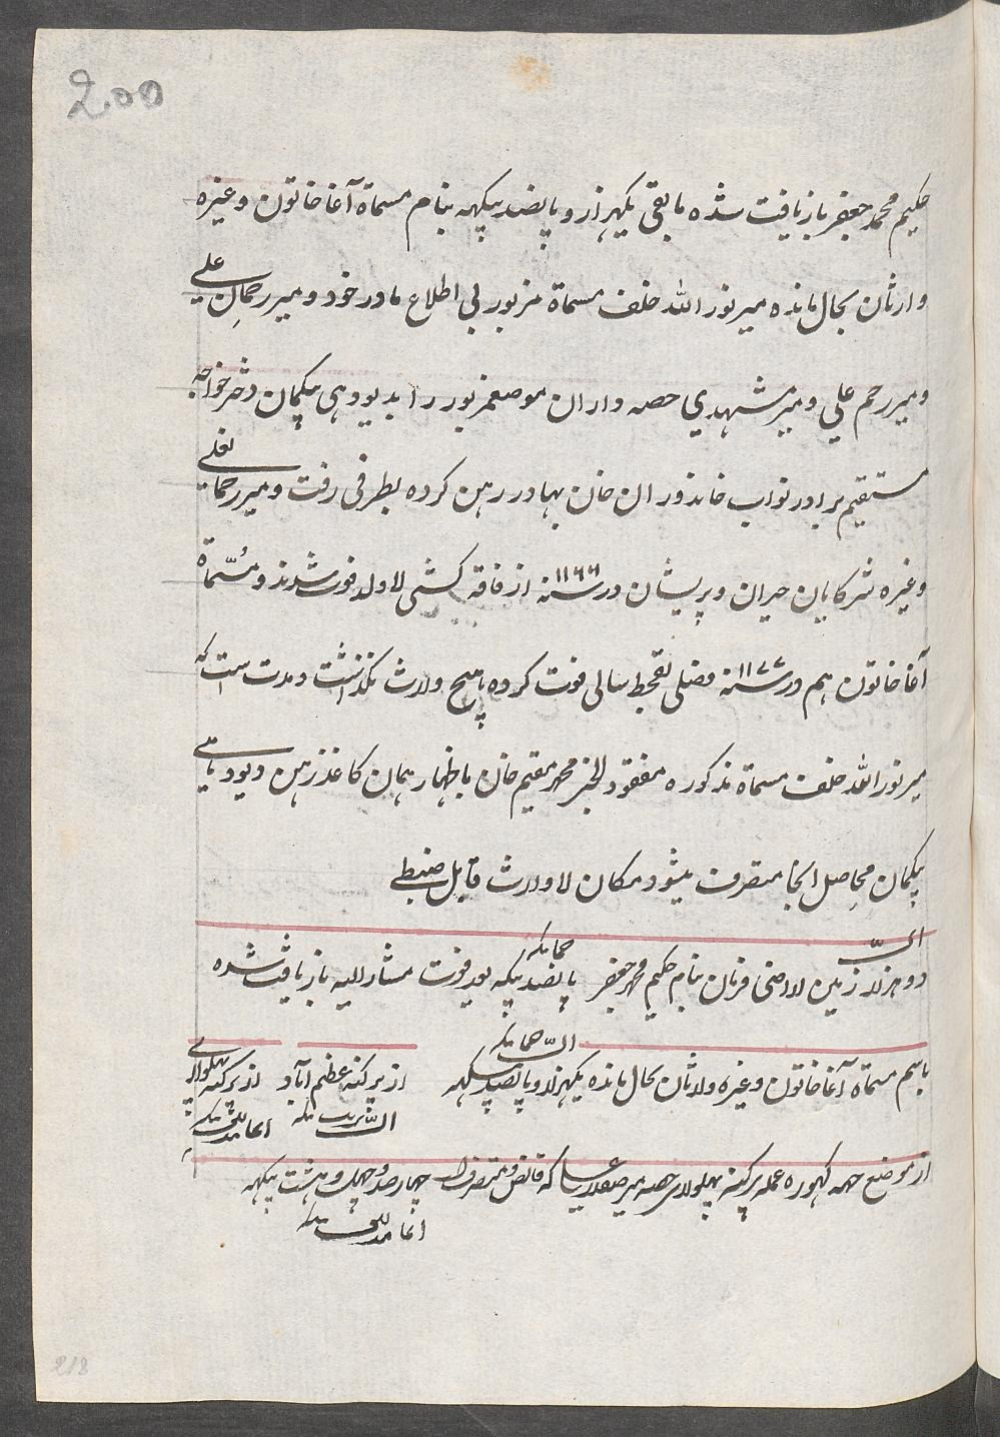 200
حکیم محمد جعفر بازیافت شده مابقی یکهزار و پانصد بیگهه بنام مسماة آغا خاتون وغیره
وارثان بحال مانده میر نور الله خلف مسماة مزبور بی اطلاع مادر خود و میر رحمان علی
و میر رحم علی و میر مشهدی حصه داران موضع مزبور را بدیودهی بیگمان دختر خواجه
مستقیم برادر نواب خاندوران خان بهادر رهن کرده بطرفی رفت و میر رحمانعلی
وغیره شرکایان حیران و پریشان در سنه ۱۱۶۶ از فاقه کشی لاولد فوت شدند و مسماة
آغا خاتون هم در سنه ۱۱۷۷ فصلی بقحط سالی فوت کرده هیچ وارث نگذاشت و مدت است که
میر نور الله خلف مسماة مذکوره مفقود الخبر محمد مقیم خان باظهار همان کاغذ رهن دیودهی
بیگمان محاصل آنجا متصرف میشود مکان لاوارث قابل ضبطی
دو هزار زمین اراضی فرمان بنام حکیم محمد جعفر پانصد بیگه بعد فوت مشار الیه بازیافت شده
باسم مسماة آغا خاتون وغیره وارثان بحال مانده یکهزار و پانصد بیگهه از پرگنه عظیم آباد از پرگنه پهلواری
از موضع کهوره عمله پرگنه پهلواری حصه میر که قابض و متصرف چهار صد و چهل و هشت بیگهه
218